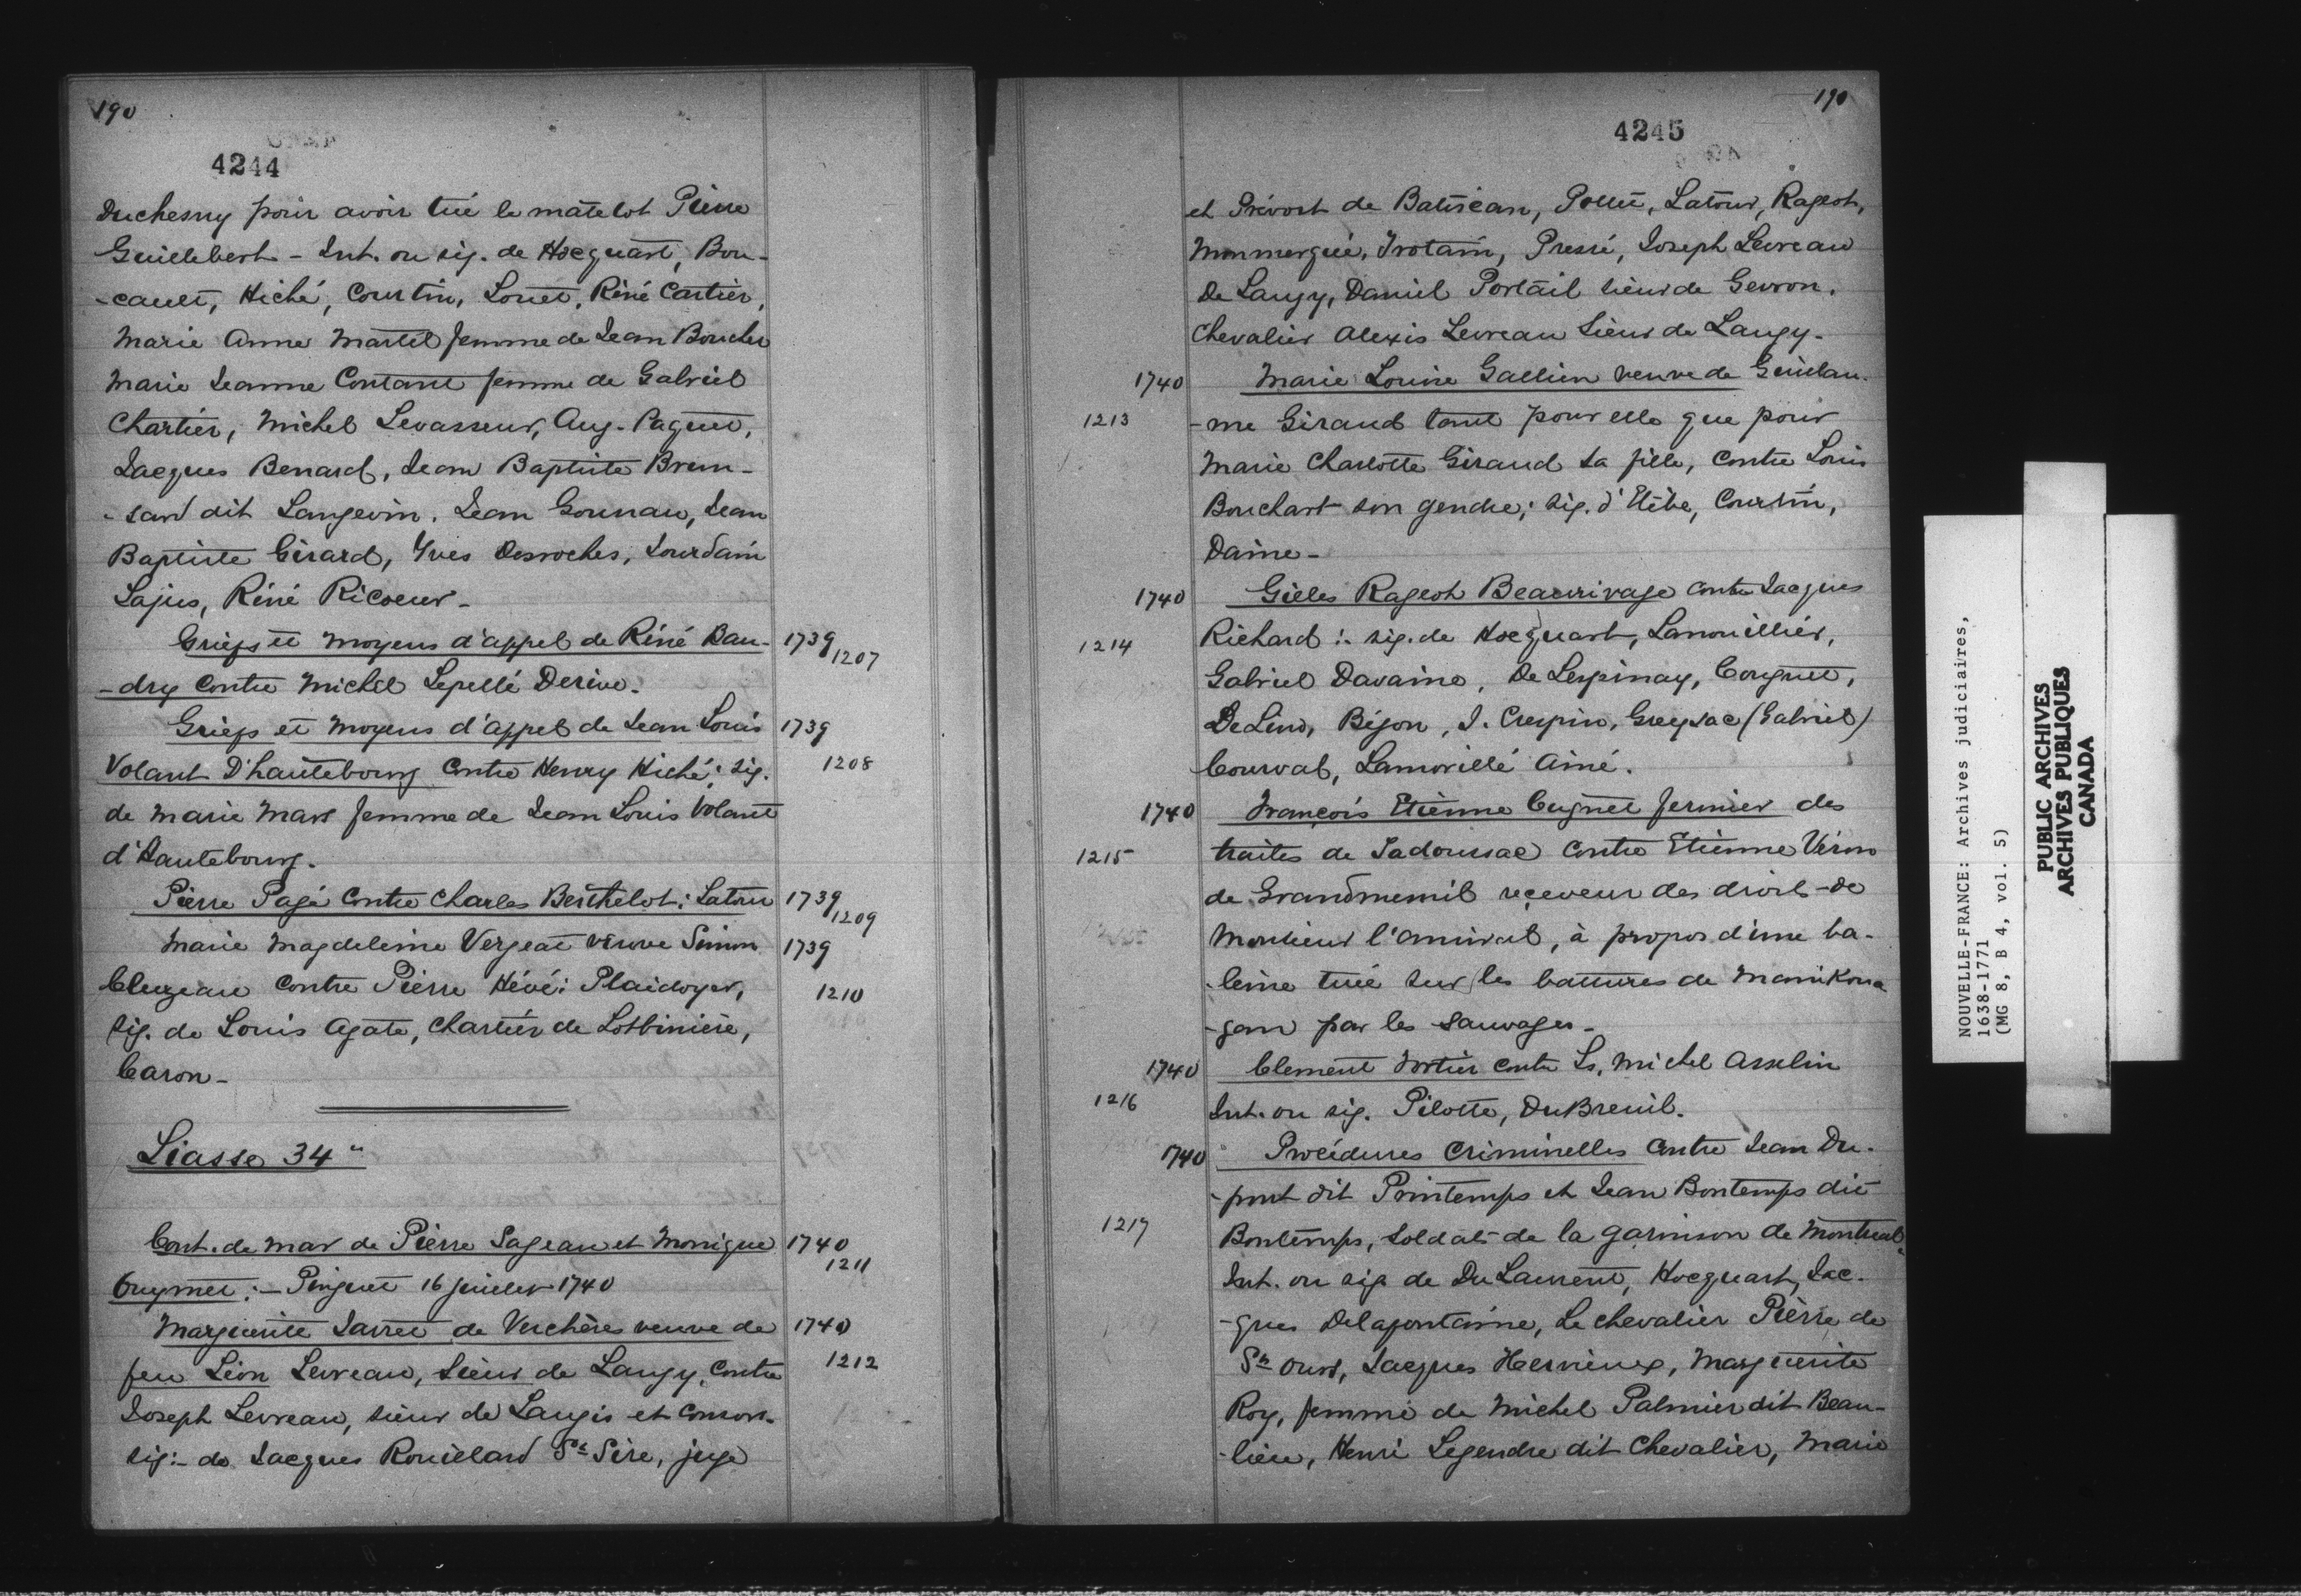 190
4244
Duchesny pour avoir tué le matelot Pierre
Guillebert - Int. ou sig. de Hocquart, Bou-
-cault, Hiché, Courtin, Louet, Réné Cartier,
Marie Anne Martel femme de Jean Boucher
Marie Jeanne Contant femme de Gabriel
Chartier, Michel Levasseur, Aug. Paquet,
Jacques Benard, Jean Baptiste Brun-
-sard dit Langevin, Jean Gounau, Jean
Baptiste Girard, Yves Desroches, Jourdain
Lajus, Réné Ricoeur -
Griefs et moyens d'appel de Réné Bau- 1739
-dry contre Michel Lepellé Derive. 1207
Griefs et moyens d'appel de Jean Louis 1739
Volant D'hautebourg contre Henry Hiché: sig. 1208
de Marie Mars femme de Jean Louis Volant
d'Hautebourg.
Pierre Pagé contre Charles Berthelot: Latour 1739
1209
Marie Magdeleine Vergeat veuve Simon 1739
Cluzeau contre Pierre Hévé: Plaidoyer, 1210
sig. de Louis Agate, Chartier de Lotbinière,
Caron -
Liasse 34"
Cont. de mar de Pierre Pageau et Monique 1740
1211
Guymet: - Pinguet 16 juillet 1740
Marguerite Jarret de Verchères veuve de 1740
feu Léon Levreau, Sieur de Langy, contre 1212
Joseph Levreau, sieur de Langis et consor.
sig: - de Jacques Rouillard St Sire, juge
190
4245
et Prévost de Batiscan, Pollet, Latour, Rageot,
Monmerqué, Trotain, Pressé, Joseph Levreau
De Langy, Daniel Portail sieur de Gevron.
Chevalier Alexis Levreau Sieur de Langy -
1740 Marie Louise Gallien veuve de Guillau-
1213 -me Giraud tant pour elle que pour
Marie Charlotte Giraud sa fille, contre Louis
Bouchart son gendre; sig. d'Etèbe, Courtin,
Daine -
1740 Gilles Rageot Beaurivage contre Jacques
1214 Richard: sig. de Hocquart, Lanouillier,
Gabriel Davaine, De Lespinay, Cougnet,
DeLino, Bégon, J. Crespin, Greysac (Gabriel)
Courval, Lamorillé Ainé.
1740 François Etienne Cugnet fermier des
1215 traites de Tadoussac contre Etienne Véron
de Grandmenil reçeveur des droits de
Monsieur l'amiral, à propos d'une ba-
-leine tuée sur les battures de Manikoua-
-gan par les sauvages -
1740 Clement Fortier contre Ls. Michel Asselin
1216 Int. ou sig. Pilotte, DuBreuil.
1740 Procédures Criminelles contre Jean Du-
-pont dit Printemps et Jean Bontemps dit
1217 Bontemps, soldats de la garnison de Montreal
Int. ou sig de Du Laurent, Hocquart, Jac-
-ques Delafontaine, Le chevalier Pierre de
St Ours, Jacques Hervieux, Marguerite
Roy, femme de Michel Palmier dit Beau-
-lieu, Henri Legendre dit Chevalier, Marie
NOUVELLE-FRANCE: Archives judiciaires,
1638-1771
(MG 8, B 4, vol. 5)
PUBLIC ARCHIVES
ARCHIVES PUBLIQUES
CANADA